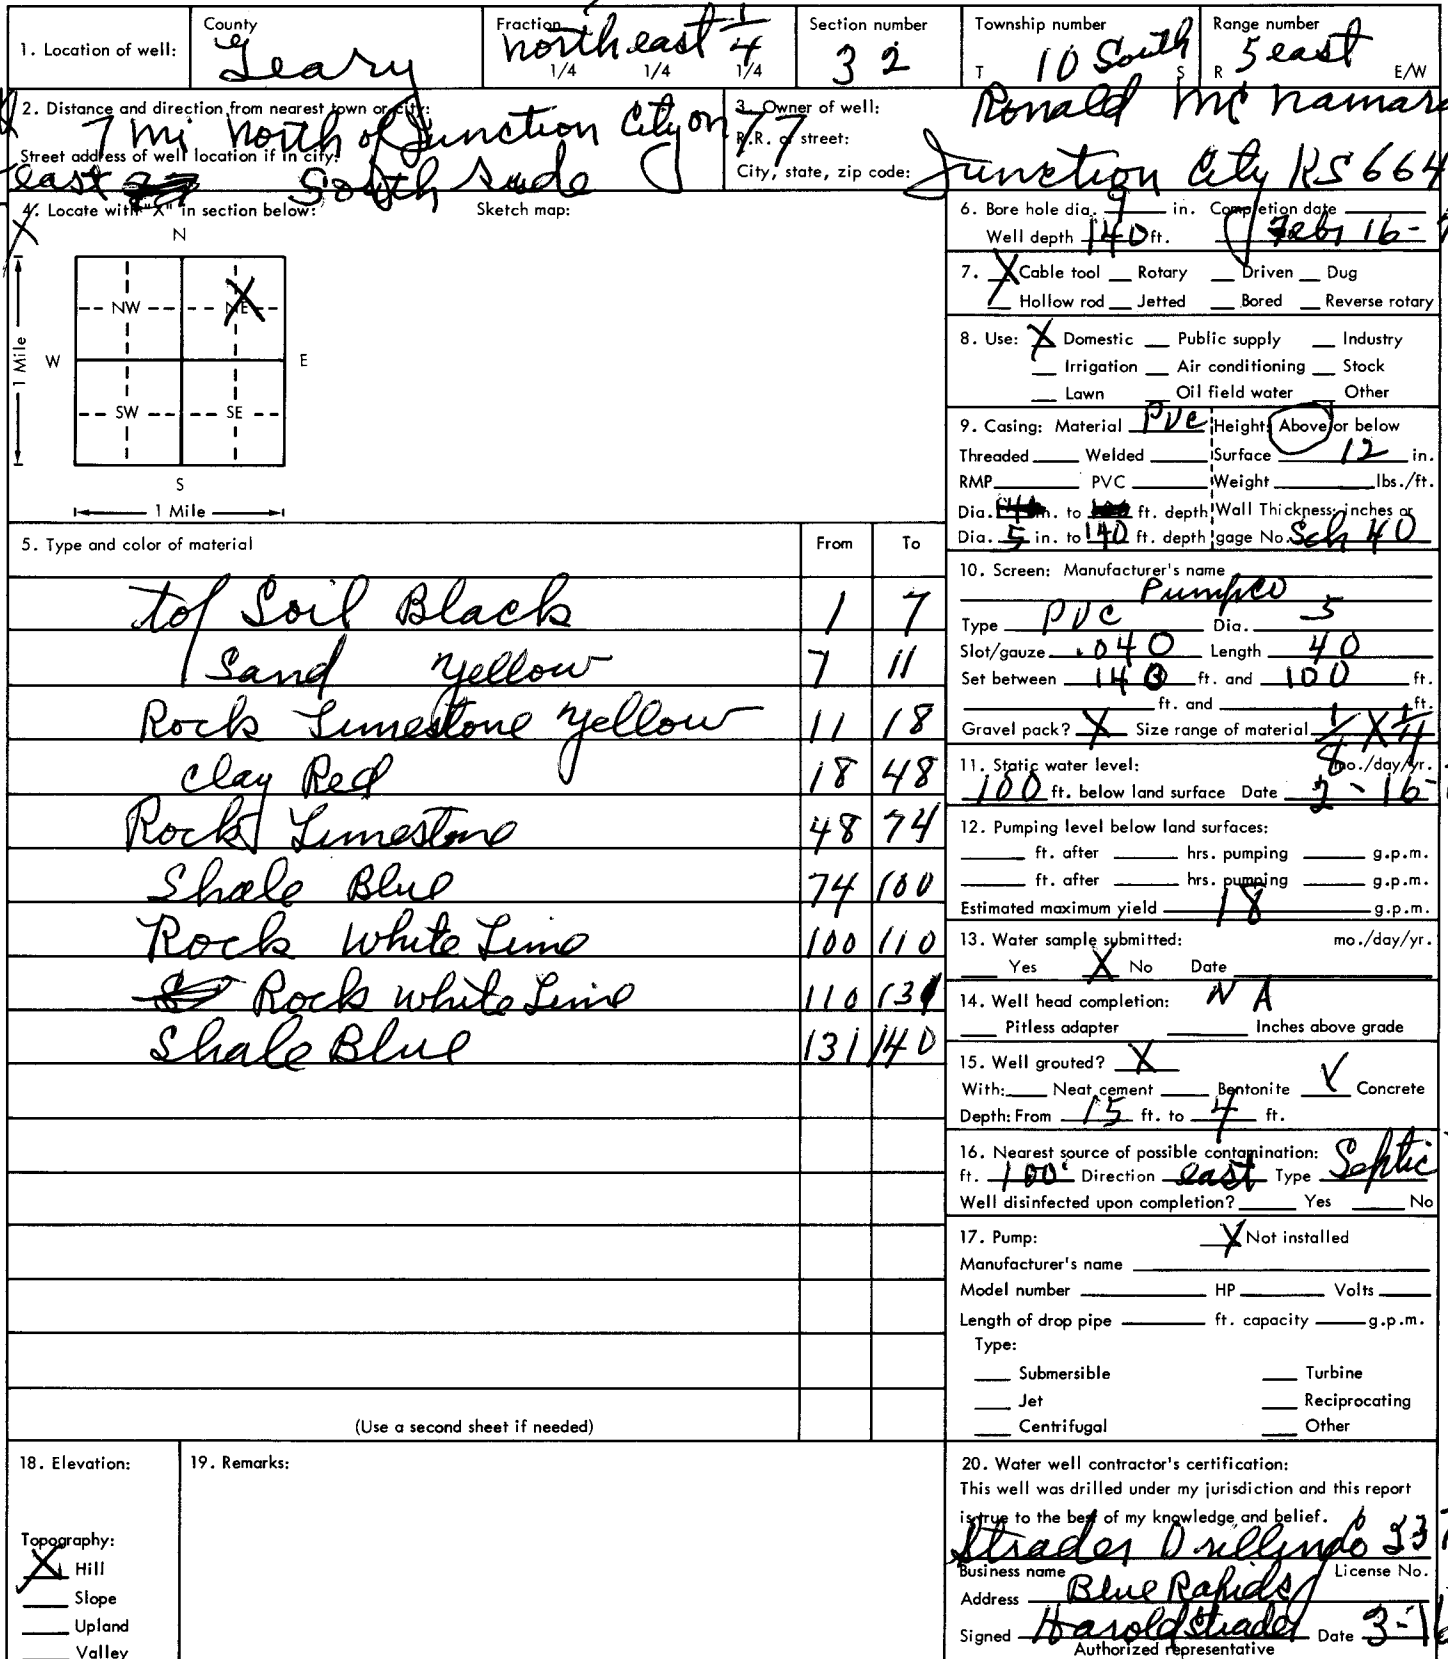 1. Location of well: County Geary Fraction northeast 1/4 1/4 1/4 1/4 Section number 32 Township number T 10 South S Range number R 5 east E/W
2. Distance and direction from nearest town or city: 7 mi north of Junction City on 77
Street address of well location if in city: east South side
3. Owner of well: Ronald McNamara
R.R. or street:
City, state, zip code: Junction City KS 664
4. Locate with "X" in section below: Sketch map:
N
NW NE X
W E
1 Mile
SW SE
S
1 Mile
5. Type and color of material From To
top Soil Black 1 7
Sand yellow 7 11
Rock Limestone yellow 11 18
Clay Red 18 48
Rock Limestone 48 74
Shale Blue 74 100
Rock White Lime 100 110
Rock White Lime 110 131
Shale Blue 131 140
(Use a second sheet if needed)
6. Bore hole dia. 9 in. Completion date
Well depth 140 ft. Feb 16-
7. X Cable tool Rotary Driven Dug
Hollow rod Jetted Bored Reverse rotary
8. Use: X Domestic Public supply Industry
Irrigation Air conditioning Stock
Lawn Oil field water Other
9. Casing: Material PVC Height: Above or below
Threaded Welded Surface 12 in.
RMP PVC Weight lbs./ft.
Dia. in. to ft. depth Wall Thickness: inches or
Dia. 5 in. to 140 ft. depth gage No. Sch 40
10. Screen: Manufacturer's name
Pumpco
Type PVC Dia. 5
Slot/gauze .040 Length 40
Set between 140 ft. and 100 ft.
ft. and ft.
Gravel pack? X Size range of material 1/8 X 1/4
11. Static water level: mo./day/yr.
100 ft. below land surface Date 2-16-
12. Pumping level below land surfaces:
ft. after hrs. pumping g.p.m.
ft. after hrs. pumping g.p.m.
Estimated maximum yield 18 g.p.m.
13. Water sample submitted: mo./day/yr.
Yes X No Date
14. Well head completion: N A
Pitless adapter Inches above grade
15. Well grouted? X
With: Neat cement Bentonite X Concrete
Depth: From 15 ft. to 4 ft.
16. Nearest source of possible contamination:
ft. 100' Direction east Type Septic
Well disinfected upon completion? Yes No
17. Pump: X Not installed
Manufacturer's name
Model number HP Volts
Length of drop pipe ft. capacity g.p.m.
Type:
Submersible Turbine
Jet Reciprocating
Centrifugal Other
18. Elevation:
Topography:
X Hill
Slope
Upland
Valley
19. Remarks:
20. Water well contractor's certification:
This well was drilled under my jurisdiction and this report
is true to the best of my knowledge and belief.
Strader Drilling Co
Business name License No.
Address Blue Rapids
Signed Harold Strader Date 3-16
Authorized representative